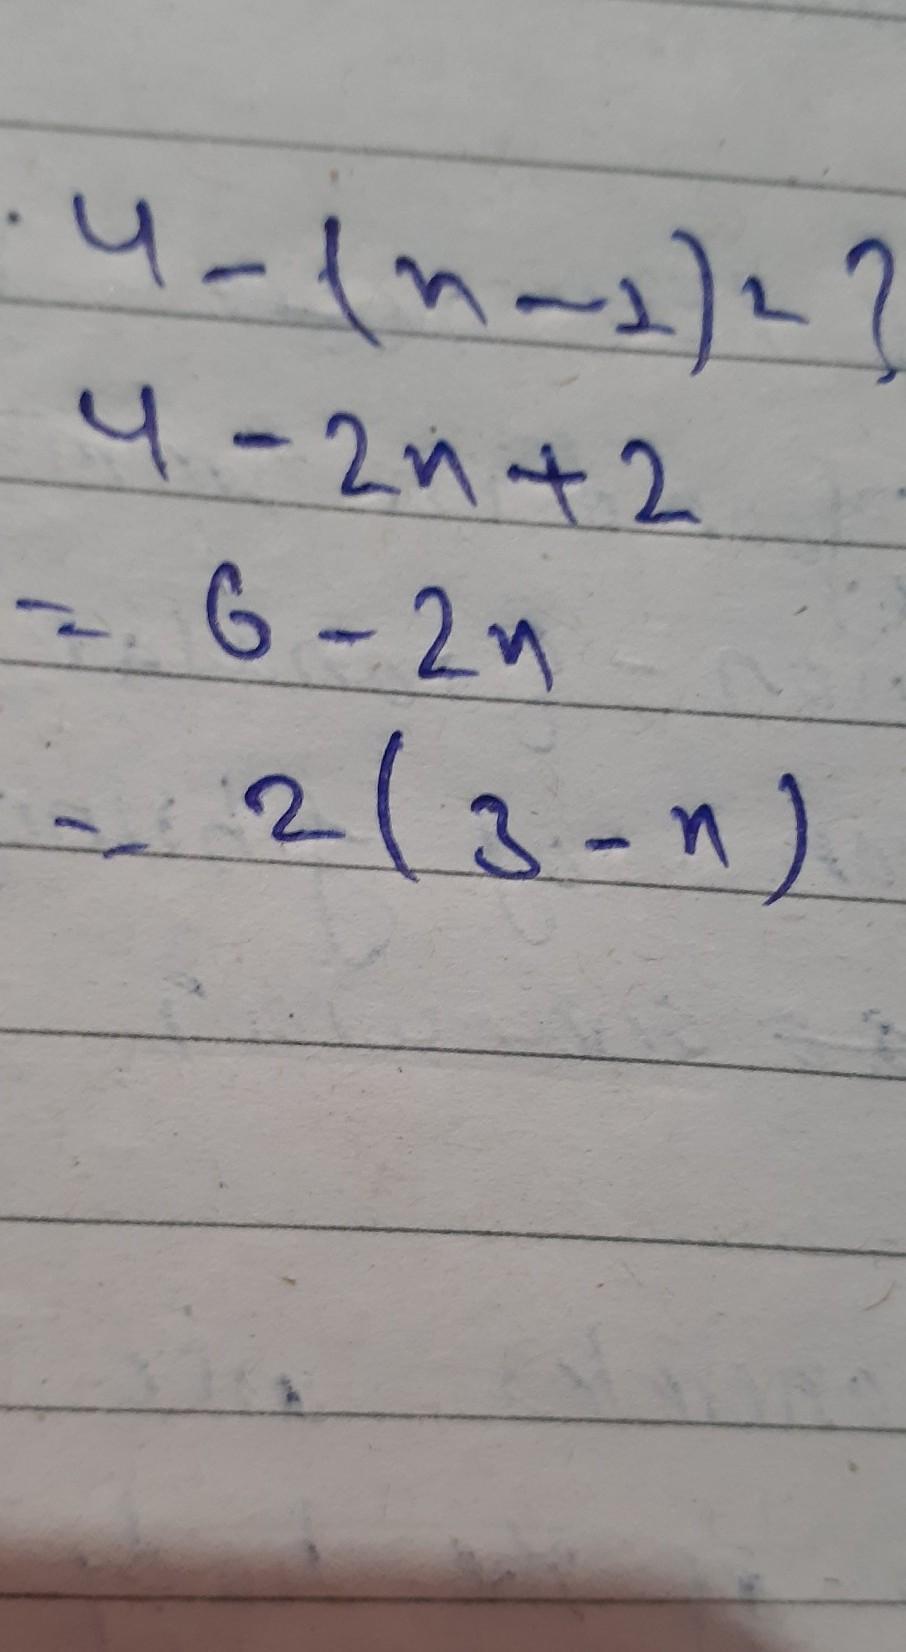 4 - (n - 1) 2 ?
4 - 2n + 2
= 6 - 2n
= 2 ( 3 - n )